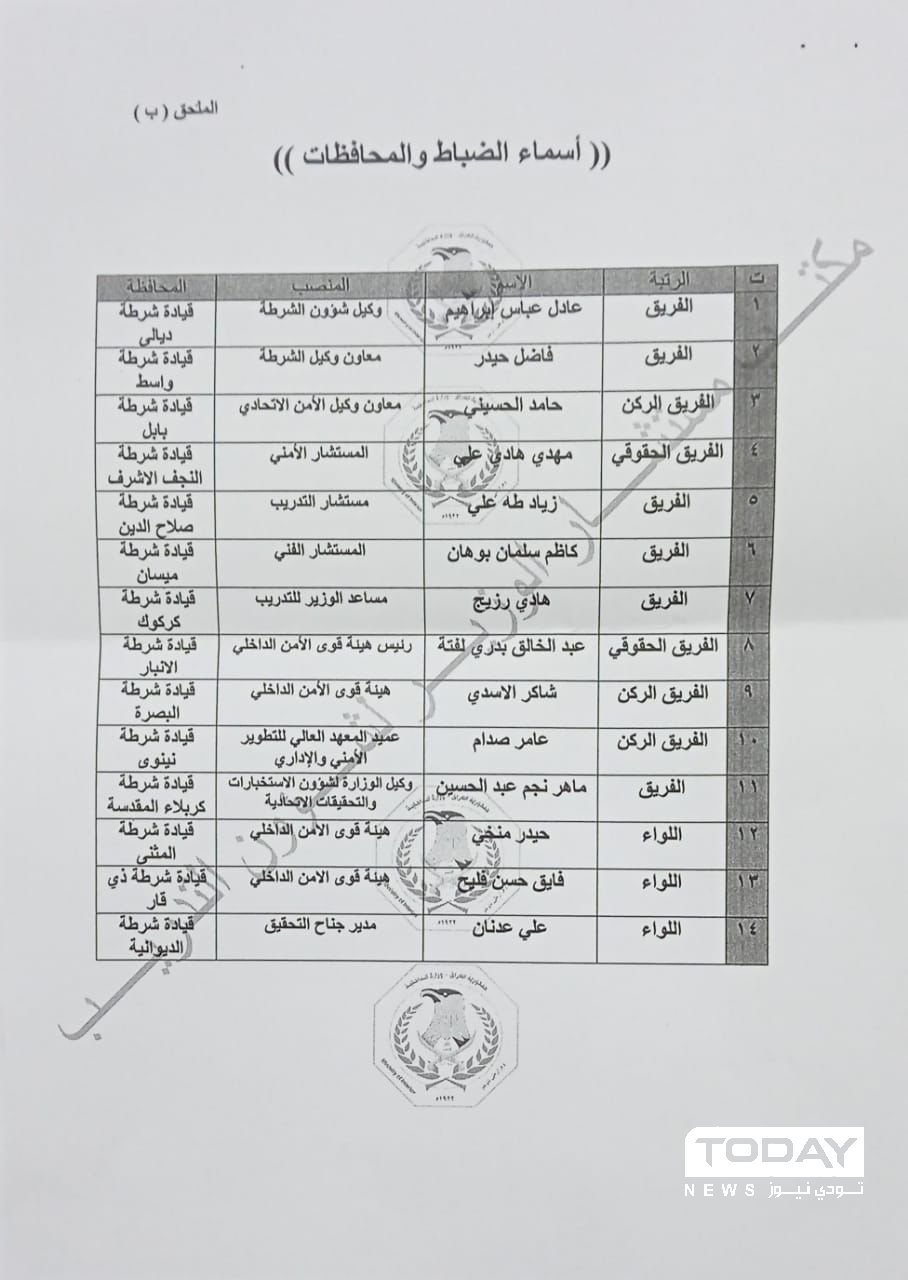 الملحق ( ب )
(( أسماء الضباط والمحافظات ))
ت الرتبة الاسم المنصب المحافظة
١ الفريق عادل عباس إبراهيم وكيل شؤون الشرطة قيادة شرطة ديالى
٢ الفريق فاضل حيدر معاون وكيل الشرطة قيادة شرطة واسط
٣ الفريق الركن حامد الحسيني معاون وكيل الأمن الاتحادي قيادة شرطة بابل
٤ الفريق الحقوقي مهدي هادي علي المستشار الأمني قيادة شرطة النجف الاشرف
٥ الفريق زياد طه علي مستشار التدريب قيادة شرطة صلاح الدين
٦ الفريق كاظم سلمان بوهان المستشار الفني قيادة شرطة ميسان
٧ الفريق هادي رزيج مساعد الوزير للتدريب قيادة شرطة كركوك
٨ الفريق الحقوقي عبد الخالق بدري لفتة رئيس هيئة قوى الأمن الداخلي قيادة شرطة الانبار
٩ الفريق الركن شاكر الاسدي هيئة قوى الأمن الداخلي قيادة شرطة البصرة
١٠ الفريق الركن عامر صدام عميد المعهد العالي للتطوير الأمني والإداري قيادة شرطة نينوى
١١ الفريق ماهر نجم عبد الحسين وكيل الوزارة لشؤون الاستخبارات والتحقيقات الاتحادية قيادة شرطة كربلاء المقدسة
١٢ اللواء حيدر منخي هيئة قوى الأمن الداخلي قيادة شرطة المثنى
١٣ اللواء فايق حسن فليح هيئة قوى الامن الداخلي قيادة شرطة ذي قار
١٤ اللواء علي عدنان مدير جناح التحقيق قيادة شرطة الديوانية
مكتب مستشار الوزير لشؤون التدريب
جمهورية العراق - وزارة الداخلية
Ministry of Interior
١٩٢٢م
TODAY
NEWS تودي نيوز